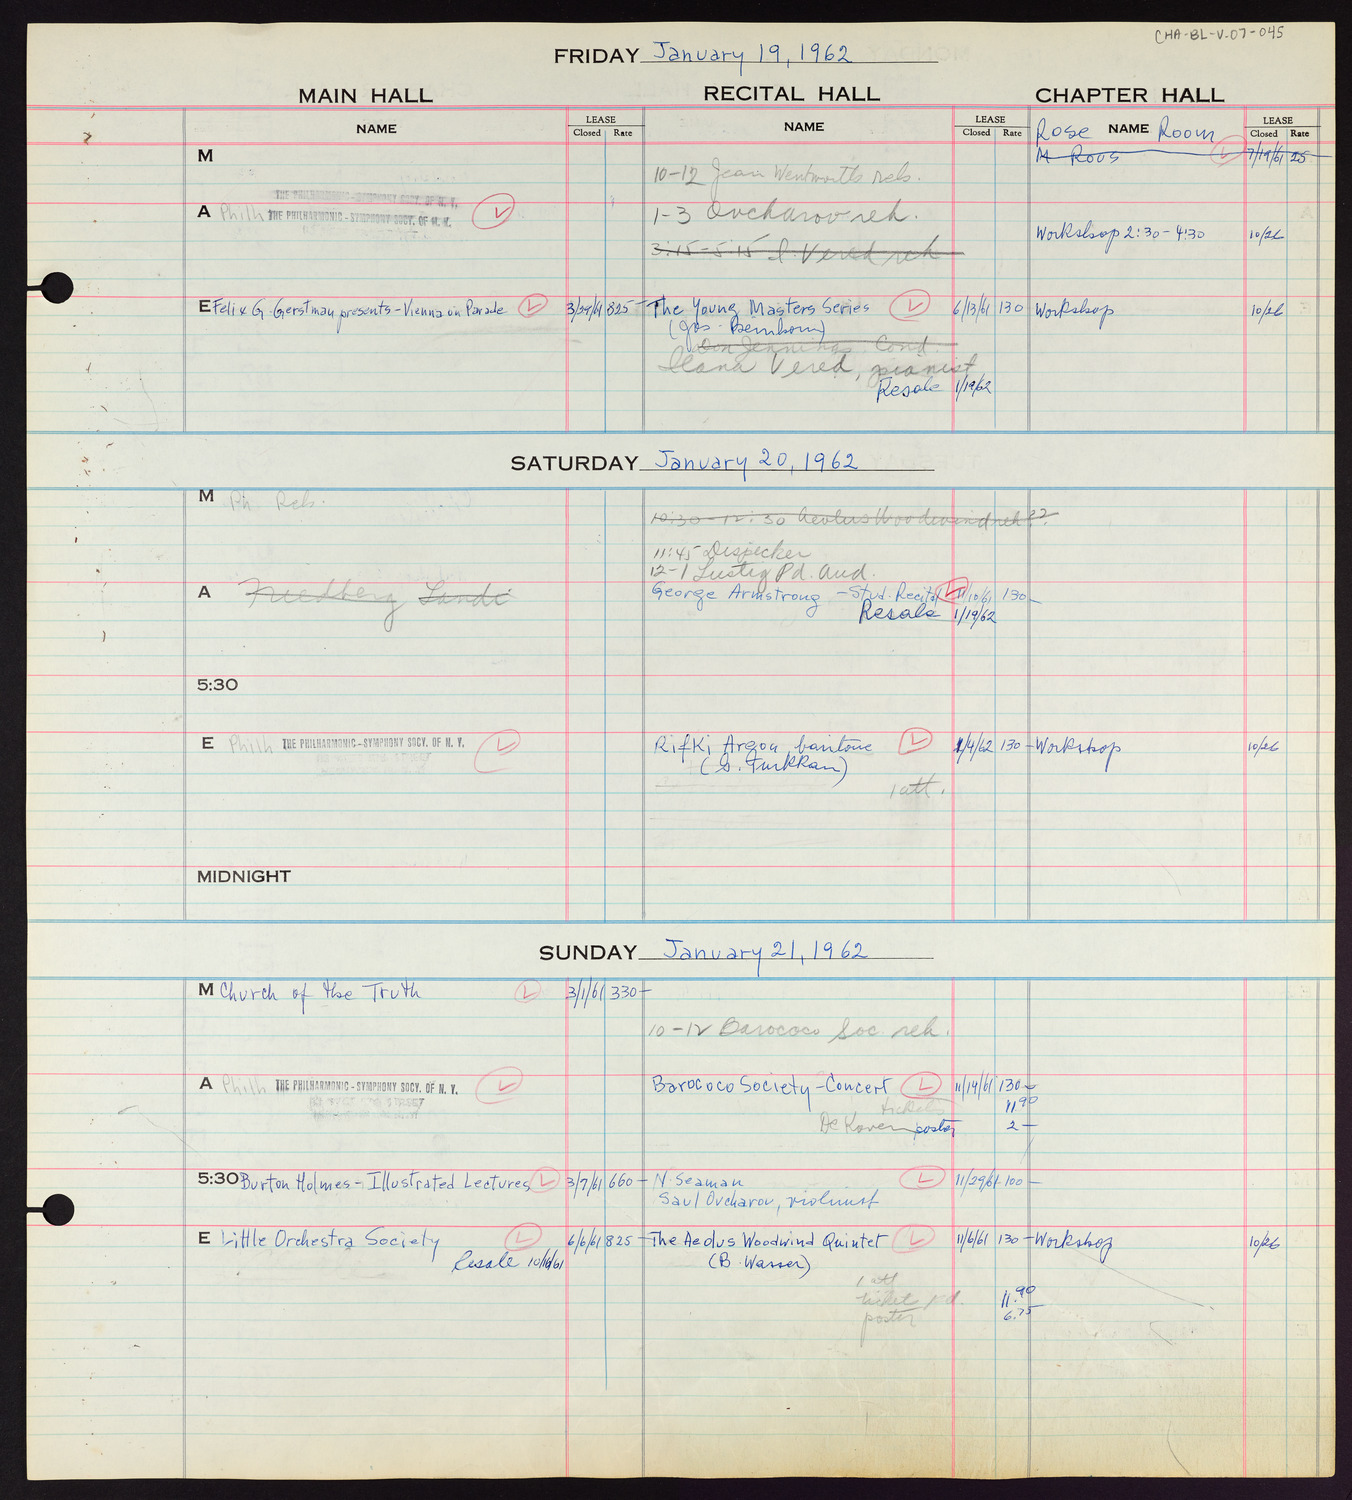 CHA-BL-V-07-045
FRIDAY January 19, 1962
MAIN HALL RECITAL HALL CHAPTER HALL
NAME LEASE Closed Rate NAME LEASE Closed Rate Rose NAME Room LEASE Closed Rate
M
M Roos 7/19/61 25-
10-12 Jean Wentworth reh.
THE PHILHARMONIC-SYMPHONY SOCY. OF N. Y.
A Philh THE PHILHARMONIC-SYMPHONY SOCY. OF N. Y. L
1-3 Ovcharov reh.
Workshop 2:30-4:30 10/26
3:15-5:15 I. Vered reh
E Felix G. Gerstman presents-Vienna on Parade L 3/29/61 825- The Young Masters Series L 6/13/61 130 Workshop 10/26
Don Jennings Cond.
Ilana Vered, pianist
Resale 1/19/62
SATURDAY January 20, 1962
M Ph. Reh.
10:30-12:30 Aeolus Woodwind reh ??
11:45 Dispecker
12-1 Lustig Pd. Aud.
A Friedberg Landi
George Armstrong - Stud. Recital L 11/10/61 130-
Resale 1/19/62
5:30
E Philh THE PHILHARMONIC-SYMPHONY SOCY. OF N. Y. L Rifki Argon, baritone L 1/4/62 130- Workshop 10/26
1 att.
MIDNIGHT
SUNDAY January 21, 1962
M Church of the Truth L 3/1/61 330-
10-12 Barococo Soc. reh.
A Philh THE PHILHARMONIC-SYMPHONY SOCY. OF N. Y. L Barococo Society-Concert L 11/14/61 130-
tickets 11.90
De Koven poster 2-
5:30 Burton Holmes- Illustrated Lectures L 3/7/61 660- N Seaman L 11/29/61 100-
Saul Ovcharov, violinist
E Little Orchestra Society L 6/6/61 825- The Aeolus Woodwind Quintet L 11/6/61 130- Workshop 10/26
Resale 10/16/61 (B. Wasser)
1 att
tickets pd. 11.90
poster 6.75